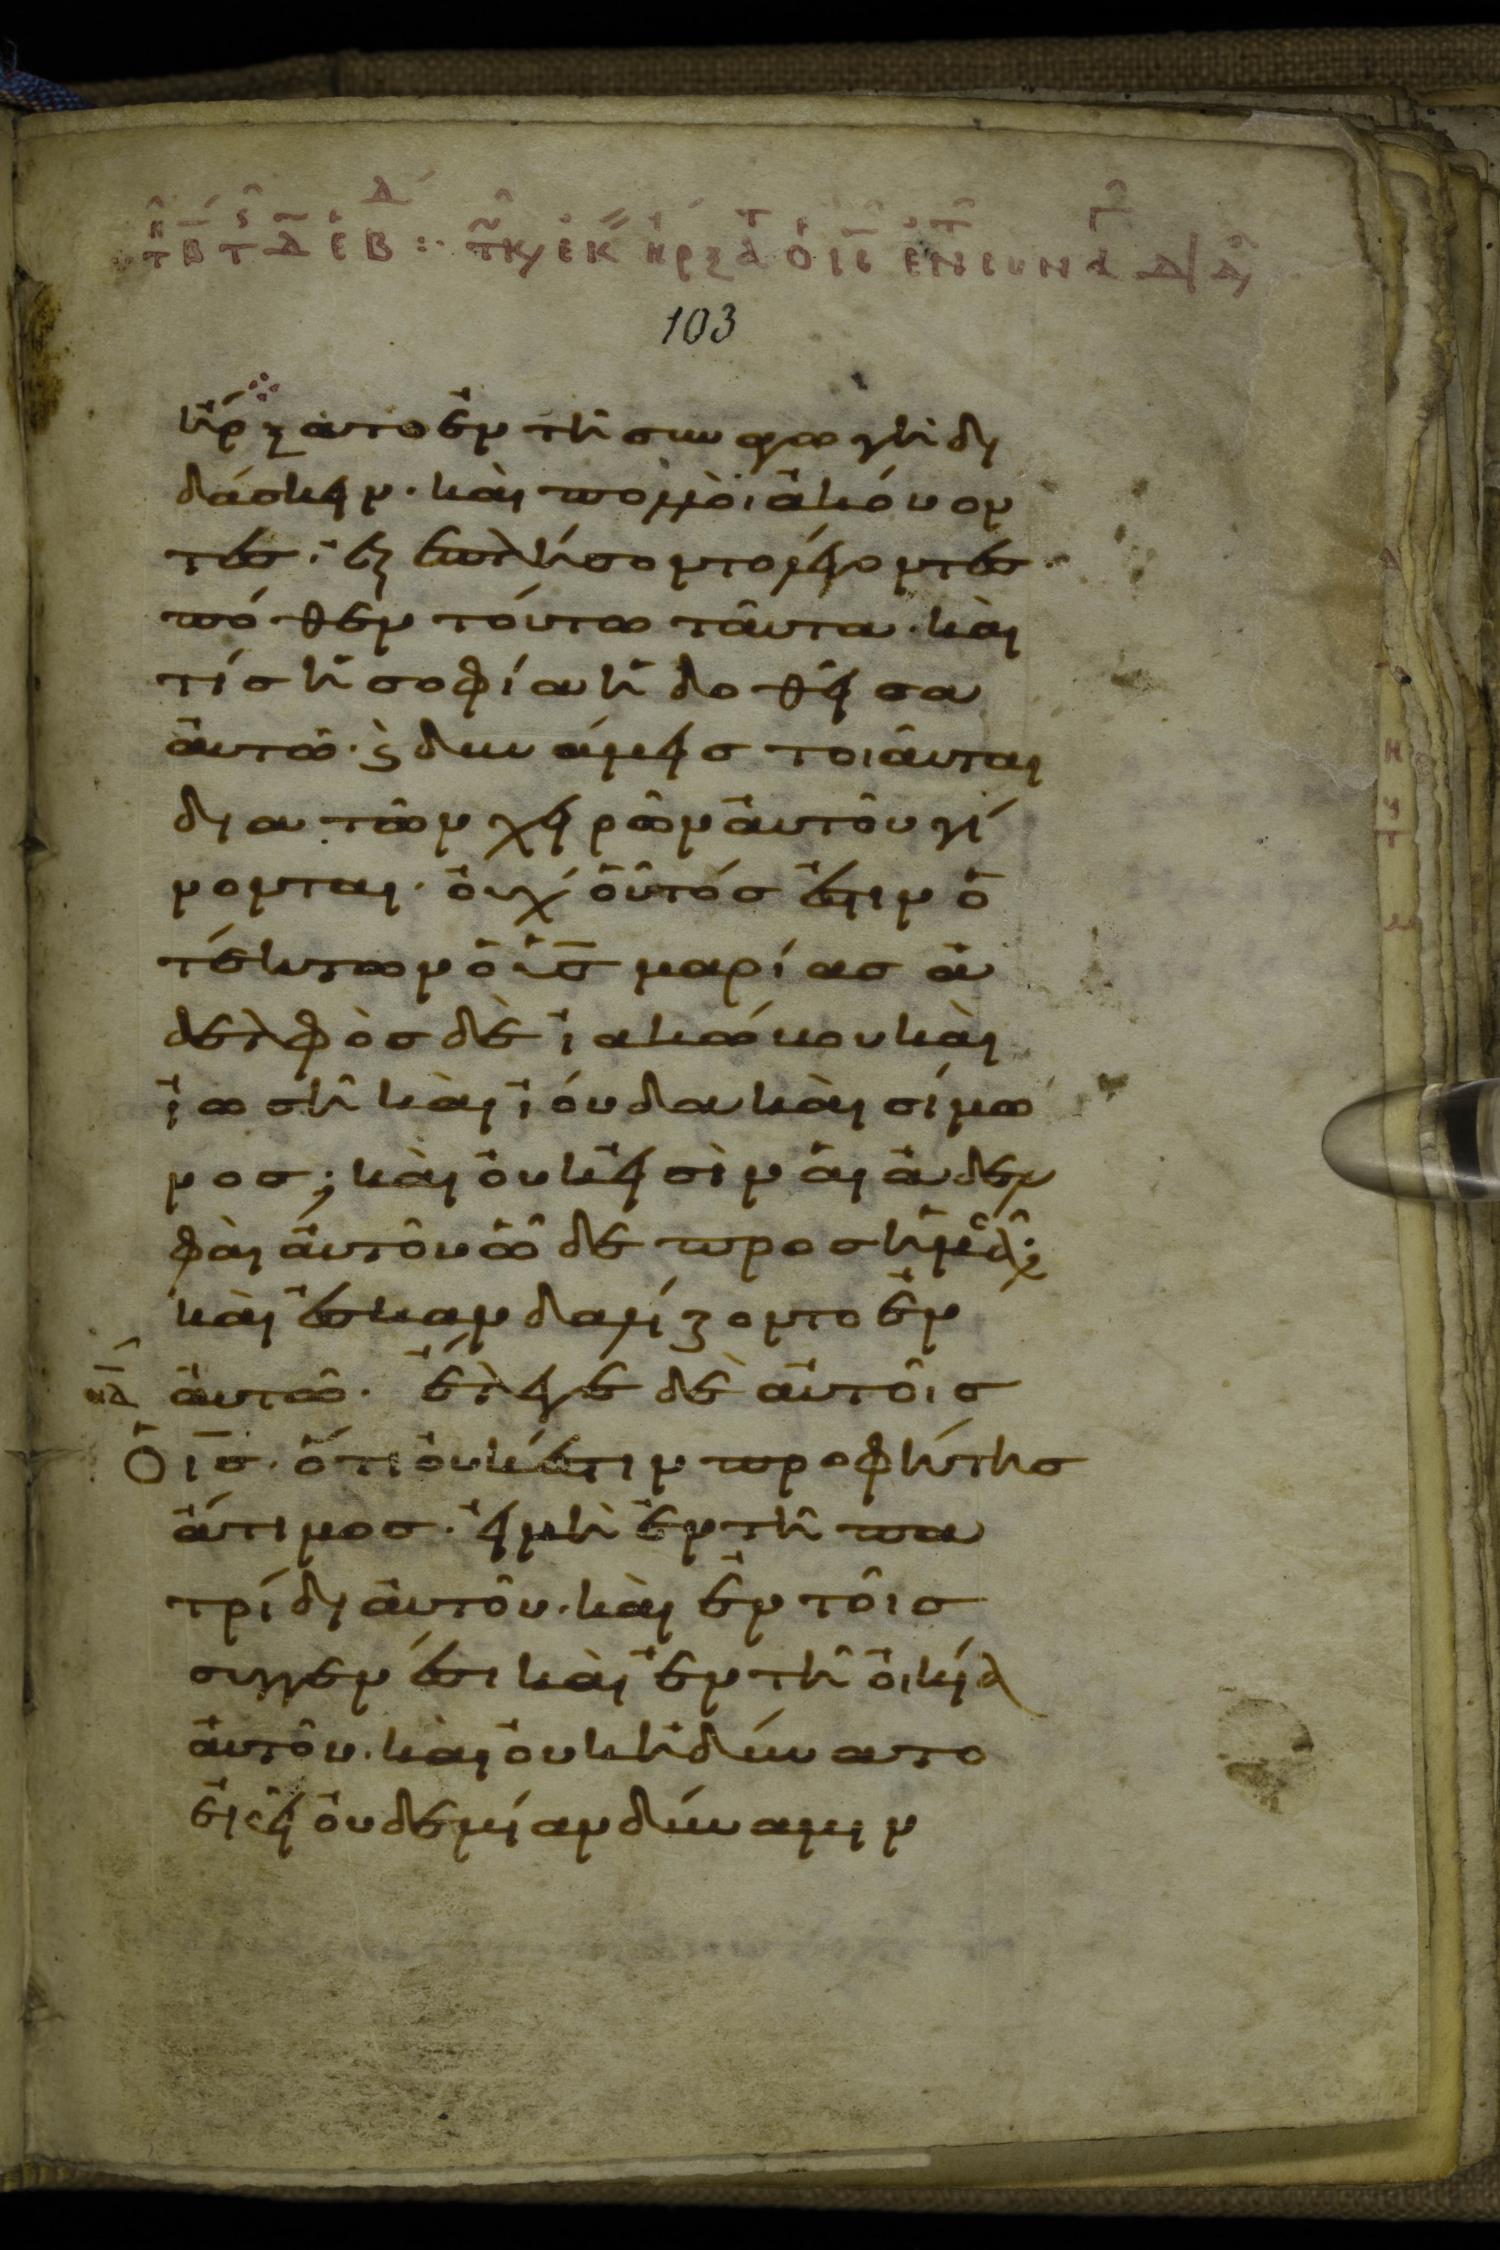 103
ἤρξατο ἐν τῆ συναγωγὴ δι
δάσκειν· καὶ πολλὸι ἀκόυον
τές· ἐξεπλήσοντο λέγοντές
πόθεν τόυτω ταῦτα· καὶ
τίς ἡ σοφία ἡ δοθεῖσα
ἀυτῶ· ϗ δυνάμεις τοιᾶυται
δια τῶν χειρῶν ἀυτοῦ γί
νονται· ὀυχ ὁῦτός ἐστιν ὁ
τέκτων ὁ ὑ̅ς̅ μαρίας ἀ
δελφὸς δὲ ϊακώβου καὶ
ϊωσῆ καὶ ϊόυδα καὶ σίμω
νος; καὶ ὀυκ εἰσὶν ἁι ἀδελ
φὰι ἀυτοῦ ὧδε προς ἡμᾶς;
καὶ ἐσκανδαλίζοντο ἐν
ἀυτῶ· ἔλεγε δὲ ἀυτοῖς
ὁ ι̅ς̅· ὅτι ὀυκ έστιν προφήτης
ἄτιμος· ἐι μὴ ἐν τῆ πα
τρίδι ἀυτοῦ· καὶ ἐν τοῖς
συγγενέσι καὶ ἐν τῆ ὀικία
ἀυτοῦ· καὶ ὀυκ ἠδύνατο
ἐκεῖ ὀυδεμίαν δύναμιν